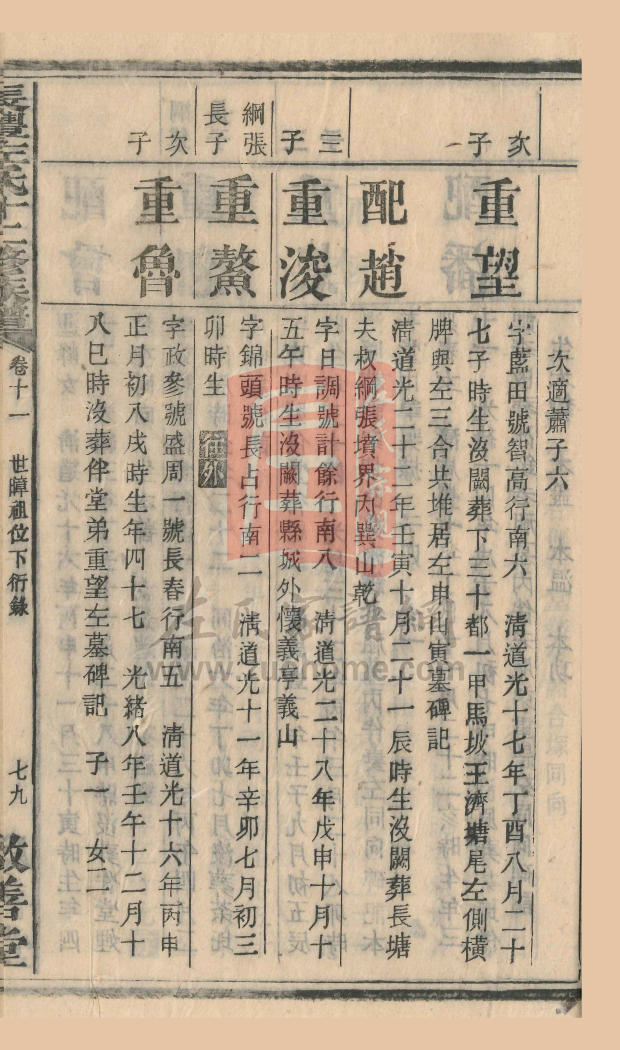 次適蕭子六
次子一
重望
字藍田號智高行南六　清道光十七年丁酉八月二十
七子時生沒闕葬下三十都一甲馬坡王濟塘尾左側橫
牌興左三合共堆居左申山寅墓碑記
配趙
清道光二十二年壬寅十月二十一辰時生沒闕葬長塘
夫叔綱張墳界內巽山乾
三子
重浚
字日調號計餘行南八　清道光二十八年戊申十月十
五午時生沒闕葬縣城外懷義亭義山
綱張長子
重鰲
字錦頭號長占行南二　清道光十一年辛卯七月初三
卯時生　往外
次子
重魯
字政參號盛周一號長春行南五　清道光十六年丙申
正月初八戌時生年四十七　光緒八年壬午十二月十
八巳時沒葬伴堂弟重望左墓碑記　子一　女二
長豐左氏十二修族譜
卷十一
世暲祖位下衍錄
七九
敦善堂
左氏家譜網
www.zuohome.com